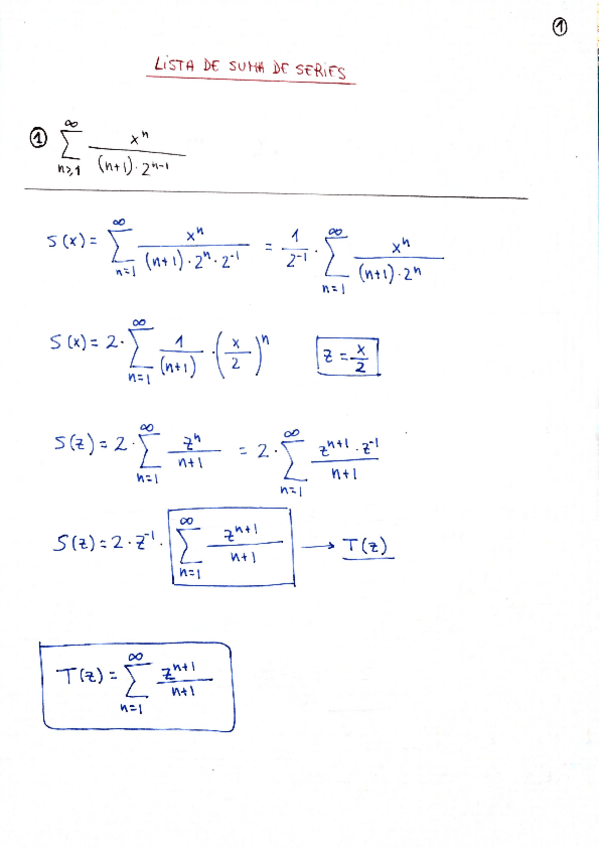 ①
LISTA DE SUMA DE SERIES
① ∑_{n≥1}^{∞} x^n / ((n+1)·2^{n-1})
S(x) = ∑_{n=1}^{∞} x^n / ((n+1)·2^n·2^{-1}) = 1/2^{-1} · ∑_{n=1}^{∞} x^n / ((n+1)·2^n)
S(x) = 2· ∑_{n=1}^{∞} 1/(n+1) · (x/2)^n z = x/2
S(z) = 2· ∑_{n=1}^{∞} z^n / n+1 = 2· ∑_{n=1}^{∞} z^{n+1}·z^{-1} / n+1
S(z) = 2·z^{-1}· ∑_{n=1}^{∞} z^{n+1} / n+1 → T(z)
T(z) = ∑_{n=1}^{∞} z^{n+1} / n+1